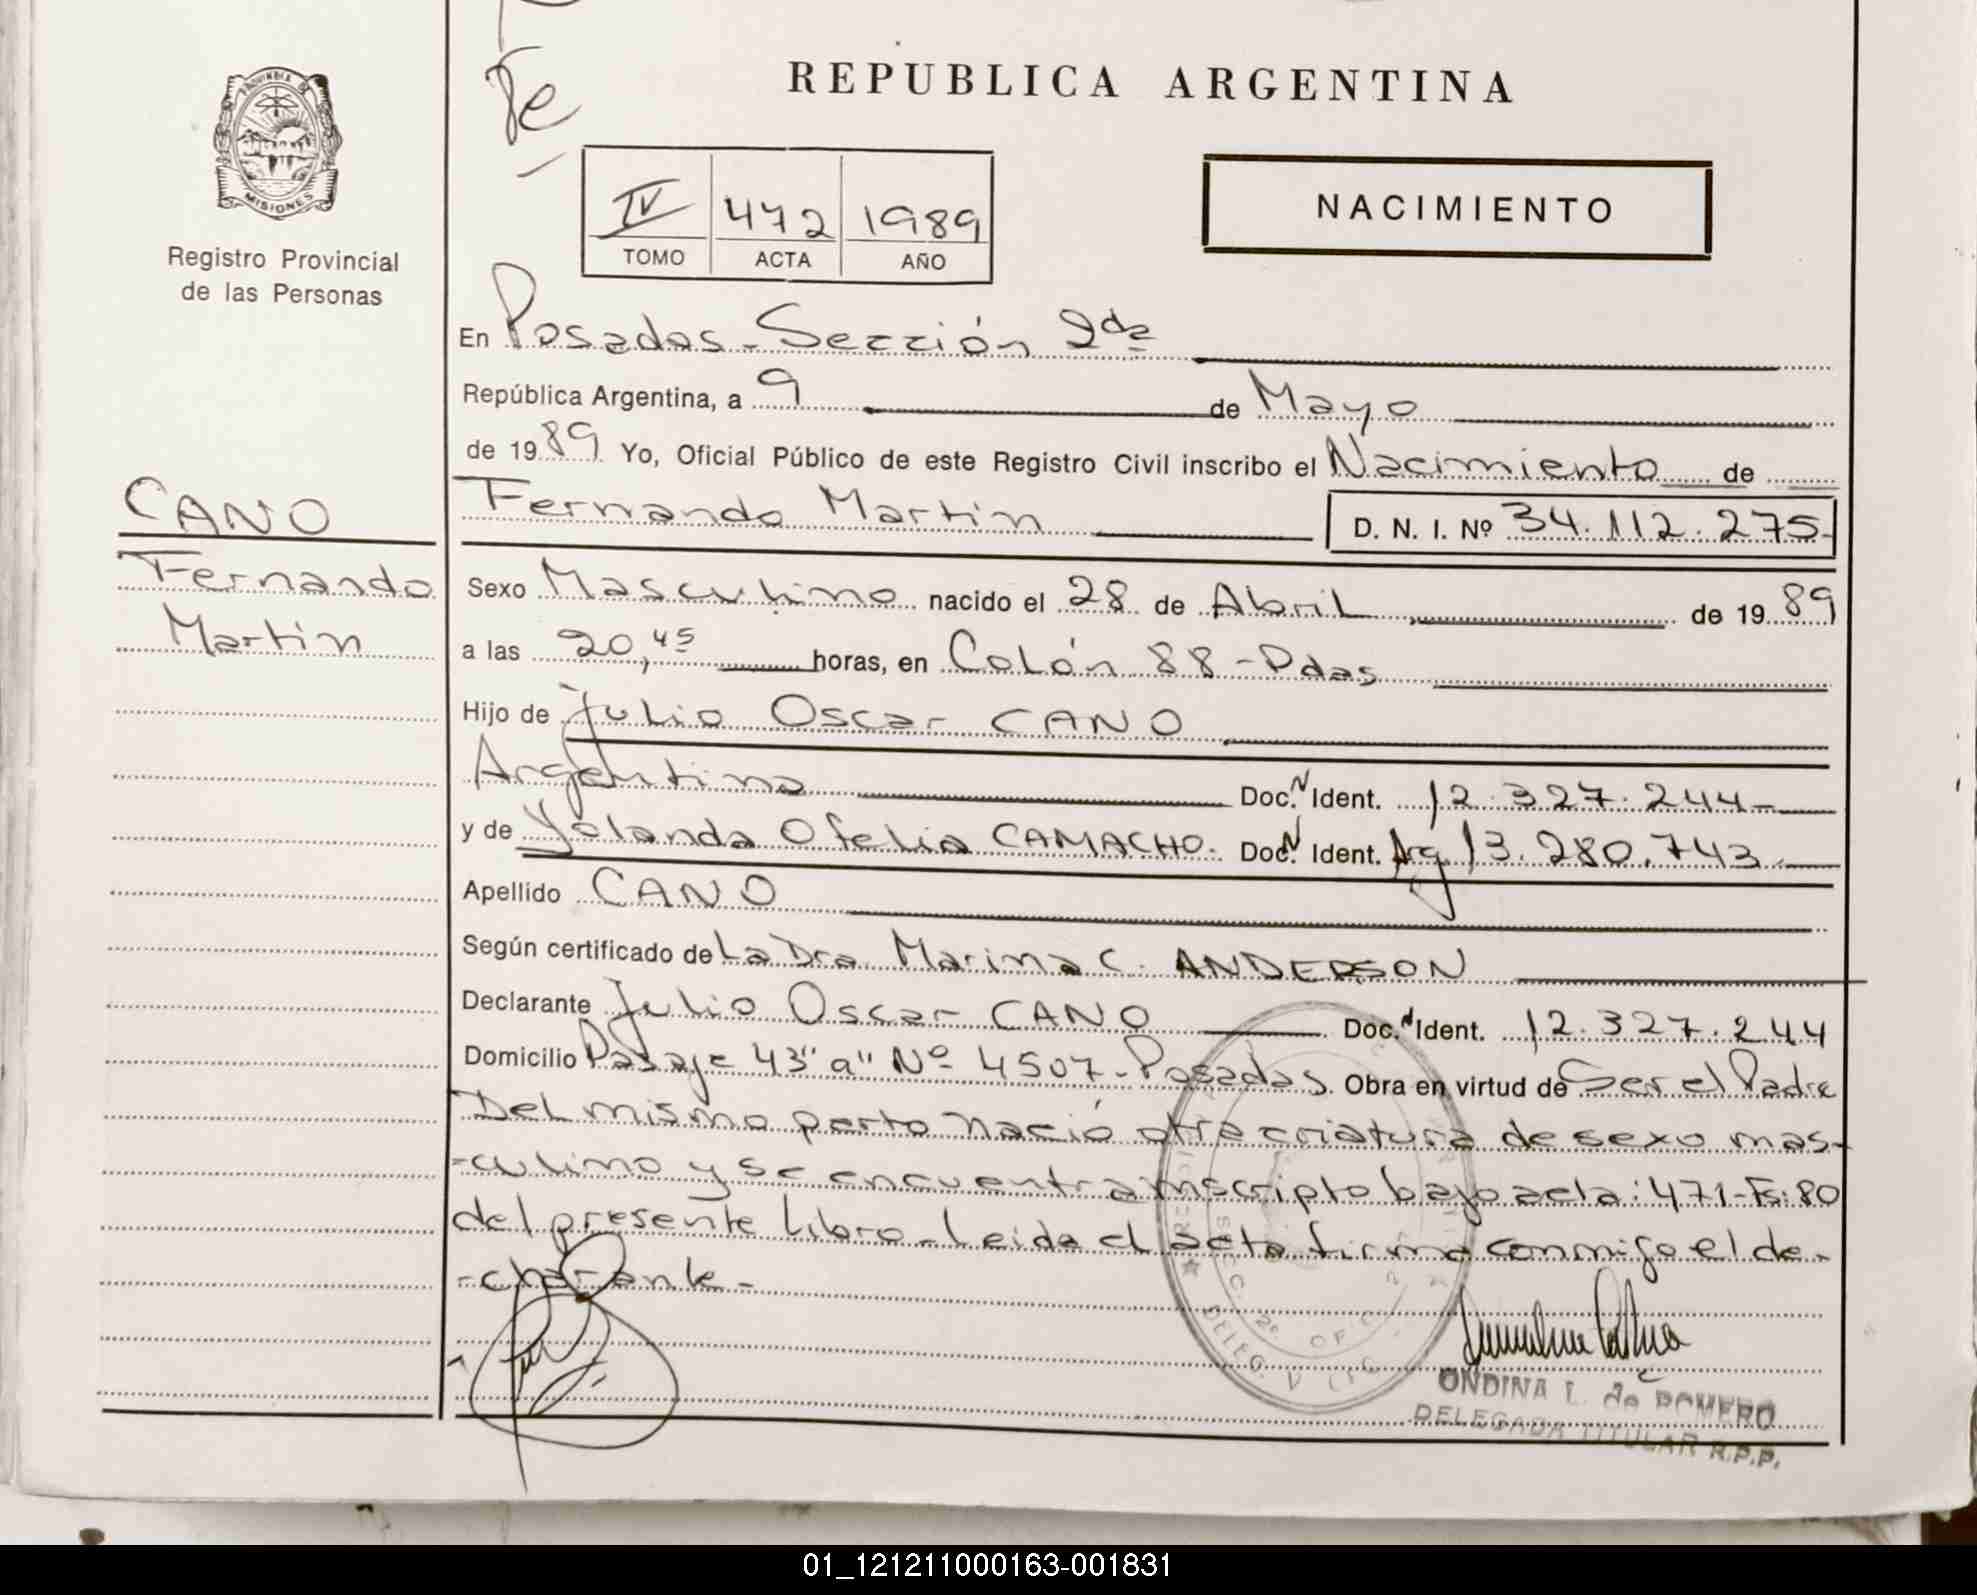 REPUBLICA ARGENTINA
MISIONES
Registro Provincial
de las Personas
IV 472 1989
TOMO ACTA AÑO
NACIMIENTO
En Posadas - Sección 2da
República Argentina, a 9 de Mayo
de 1989 Yo, Oficial Público de este Registro Civil inscribo el Nacimiento de
CANO
Fernando Martin D. N. I. Nº 34.112.275-
Fernando
Martin
Sexo Masculino nacido el 28 de Abril de 1989
a las 20,45 horas, en Colón 88 - Pdas
Hijo de Julio Oscar CANO
Argentina Doc. N Ident. 12.327.244-
y de Yolanda Ofelia CAMACHO. Doc. N Ident. Arg 13.280.743-
Apellido CANO
Según certificado de La Dra Marina C. ANDERSON
Declarante Julio Oscar CANO Doc. N Ident. 12.327.244
Domicilio Pasaje 43"a" Nº 4507-Posadas. Obra en virtud de Ser el Padre
Del mismo parto nació otra criatura de sexo mas-
-culino y se encuentra inscripto bajo acta: 471-Fs: 80
del presente Libro - Leida el acta firma conmigo el de-
-clarante -
ONDINA L. de ROMERO
DELEGADA TITULAR R.P.P.
01_121211000163-001831